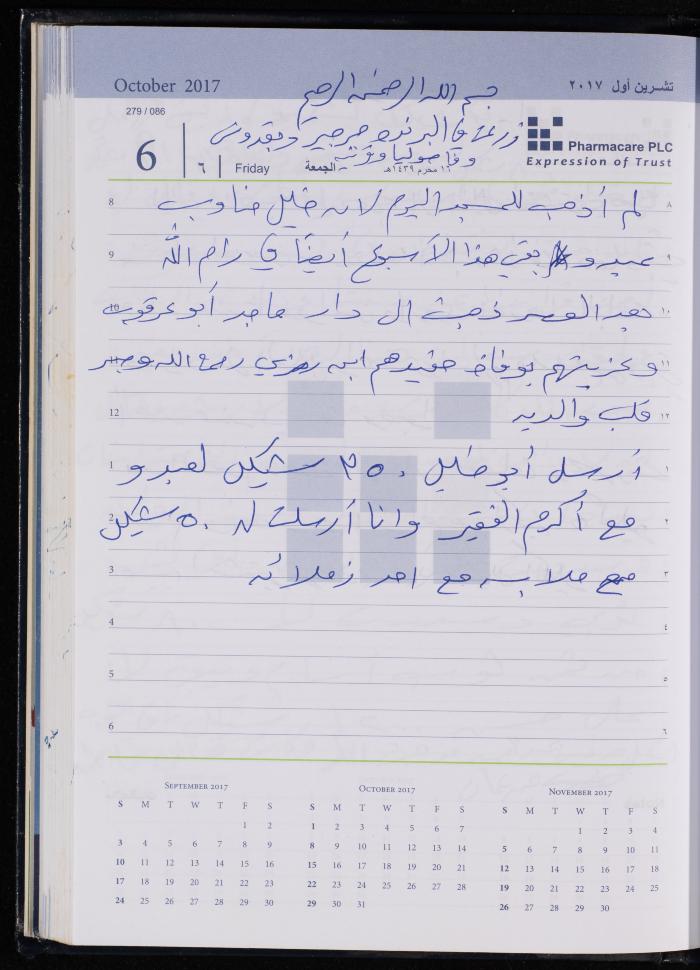 October 2017
تشرين أول ٢٠١٧
بسم الله الرحمن الرحيم
279 / 086
زرعنا في البرندة جرجير وبقدونس
وفاصوليا وقرنبيه
6
٦
Friday
الجمعة
١٦ محرم ١٤٣٩هـ
Pharmacare PLC
Expression of Trust
8 لم أذهب للمسجد اليوم لانه خليل مناوب ٨
9 عبدو بقي هذا الأسبوع أيضاً في رام الله ٩
10 بعد العصر ذهبت الى دار ماجد أبو عرقوب ١٠
11 وعزيتهم بوفاة حفيدهم ابن رمزي رحمه الله وصبر ١١
12 قلب والديه ١٢
1 أرسل أبو خليل ٣٥٠ شيكل لعبدو ١
2 مع أكرم الفقير وانا أرسلت له ٥٠ شيكل ٢
3 مع ملابسه مع احد زملائه ٣
4 ٤
5 ٥
6 ٦
September 2017
S M T W T F S
1 2
3 4 5 6 7 8 9
10 11 12 13 14 15 16
17 18 19 20 21 22 23
24 25 26 27 28 29 30
October 2017
S M T W T F S
1 2 3 4 5 6 7
8 9 10 11 12 13 14
15 16 17 18 19 20 21
22 23 24 25 26 27 28
29 30 31
November 2017
S M T W T F S
1 2 3 4
5 6 7 8 9 10 11
12 13 14 15 16 17 18
19 20 21 22 23 24 25
26 27 28 29 30